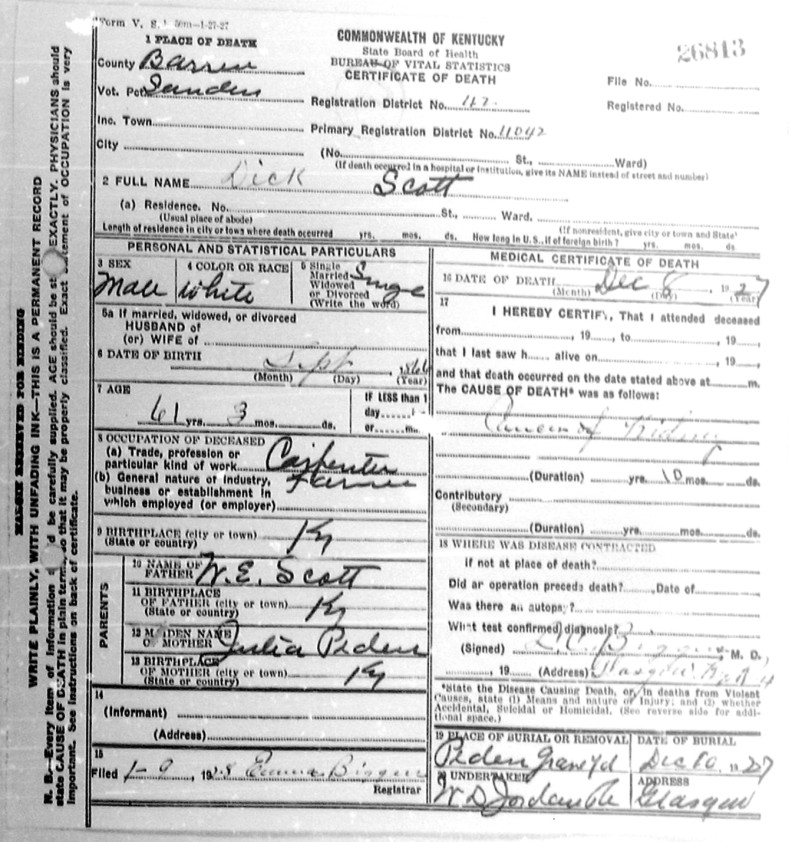 Form V. S. 50m-1-27-27
COMMONWEALTH OF KENTUCKY
State Board of Health
BUREAU OF VITAL STATISTICS
CERTIFICATE OF DEATH
26813
1 PLACE OF DEATH
County Barren
File No.
Vot. Pct. Sanders
Registration District No. 42
Registered No.
Inc. Town
Primary Registration District No. 4042
City (No. St., Ward)
(If death occurred in a hospital or institution, give its NAME instead of street and number)
2 FULL NAME Dick Scott
(a) Residence. No. St., Ward.
(Usual place of abode) (If nonresident, give city or town and State)
Length of residence in city or town where death occurred yrs. mos. ds. How long in U.S., if of foreign birth? yrs. mos. ds
PERSONAL AND STATISTICAL PARTICULARS
3 SEX
Male
4 COLOR OR RACE
White
5 Single
Married
Widowed
or Divorced
(Write the word)
Single
5a If married, widowed, or divorced
HUSBAND of
(or) WIFE of
6 DATE OF BIRTH Sept 1866
(Month) (Day) (Year)
7 AGE
61 yrs. 3 mos. ds.
IF LESS than 1
day
or m.
8 OCCUPATION OF DECEASED
(a) Trade, profession or
particular kind of work Carpenter
(b) General nature of Industry,
business or establishment in
which employed (or employer)
Farmer
9 BIRTHPLACE (city or town)
(State or country) Ky
PARENTS
10 NAME OF
FATHER W. E. Scott
11 BIRTHPLACE
OF FATHER (city or town)
(State or country) Ky
12 MAIDEN NAME
OF MOTHER Julia Peden
13 BIRTHPLACE
OF MOTHER (city or town)
(State or country) Ky
14
(Informant)
(Address)
15
Filed 1-9, 1928 Emma Biggers
Registrar
MEDICAL CERTIFICATE OF DEATH
16 DATE OF DEATH Dec 8 1927
(Month) (Day) (Year)
17
I HEREBY CERTIFY, That I attended deceased
from , 19 , to , 19 ,
that I last saw h alive on , 19 ,
and that death occurred on the date stated above at m.
The CAUSE OF DEATH* was as follows:
Cancer of Kidney
(Duration) yrs. 10 mos. ds.
Contributory
(Secondary)
(Duration) yrs. mos. ds.
18 WHERE WAS DISEASE CONTRACTED
if not at place of death?
Did an operation precede death? Date of
Was there an autopsy?
What test confirmed diagnosis?
(Signed) M. D.
, 19 (Address) Glasgow Ky R 4
*State the Disease Causing Death, or, in deaths from Violent
Causes, state (1) Means and nature of Injury; and (2) whether
Accidental, Suicidal or Homicidal. (See reverse side for addi-
tional space.)
19 PLACE OF BURIAL OR REMOVAL
Peden Graveyd
DATE OF BURIAL
Dec 10, 1927
20 UNDERTAKER
ADDRESS
W D Jordan
Glasgow
MARGIN RESERVED FOR BINDING
WRITE PLAINLY, WITH UNFADING INK—THIS IS A PERMANENT RECORD
N. B.—Every Item of Information be carefully supplied. AGE should be EXACTLY. PHYSICIANS should
state CAUSE OF DEATH in plain terms, so that it may be properly classified. Exact statement of OCCUPATION is very
Important. See Instructions on back of certificate.